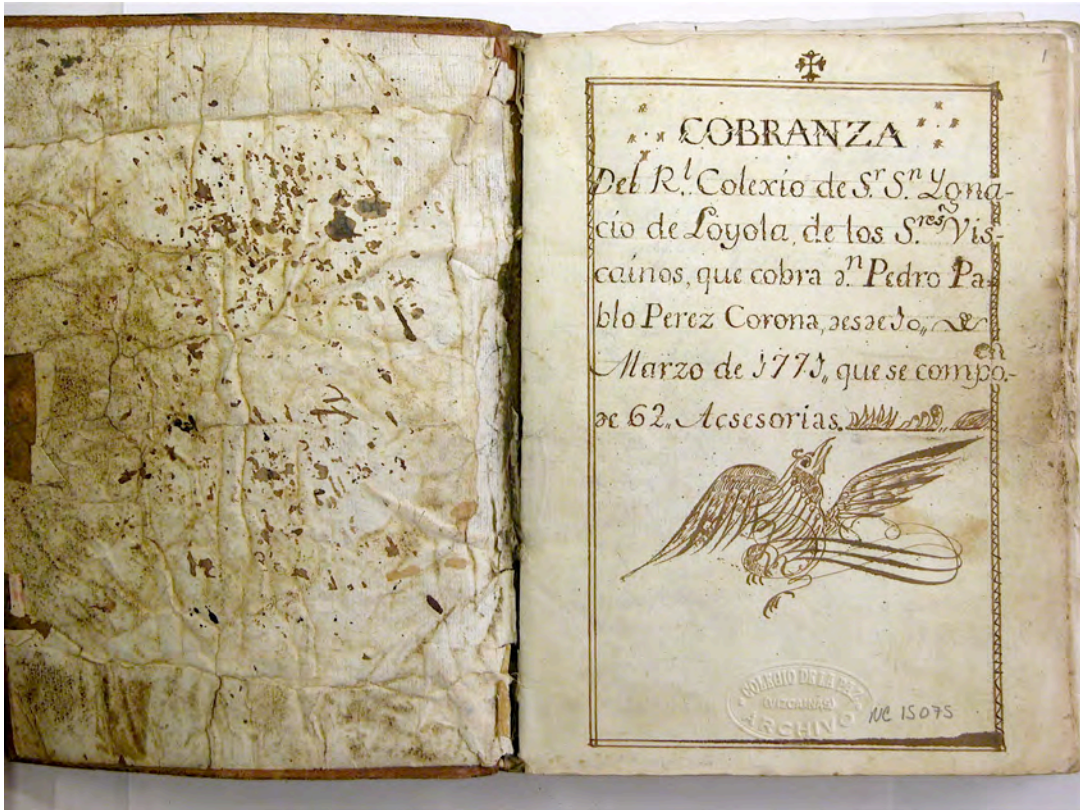 1
COBRANZA
Del R.l Colexio de S.r S.n Ygna-
cio de Loyola, de los S.res Vis-
caínos, que cobra d.n Pedro Pa-
blo Perez Corona, desde 1o,, de
Marzo de 1771,, que se compo-
en
de 62,, Acsesorias.
COLEGIO DE LA PAZ
(VIZCAINAS)
ARCHIVO
NC 15075